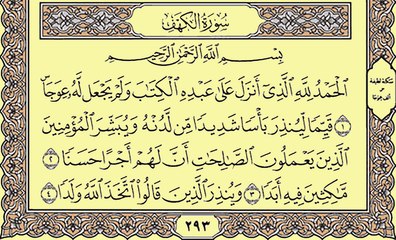 سُورَةُ الكَهۡفِ
بِسۡمِ ٱللَّهِ ٱلرَّحۡمَٰنِ ٱلرَّحِيمِ
ٱلۡحَمۡدُ لِلَّهِ ٱلَّذِيٓ أَنزَلَ عَلَىٰ عَبۡدِهِ ٱلۡكِتَٰبَ وَلَمۡ يَجۡعَل لَّهُۥ عِوَجَاۜ
١ قَيِّمٗا لِّيُنذِرَ بَأۡسٗا شَدِيدٗا مِّن لَّدُنۡهُ وَيُبَشِّرَ ٱلۡمُؤۡمِنِينَ
ٱلَّذِينَ يَعۡمَلُونَ ٱلصَّٰلِحَٰتِ أَنَّ لَهُمۡ أَجۡرًا حَسَنٗا ٢
مَّٰكِثِينَ فِيهِ أَبَدٗا ٣ وَيُنذِرَ ٱلَّذِينَ قَالُواْ ٱتَّخَذَ ٱللَّهُ وَلَدٗا ٤
سكتة لطيفة
على
٢٩٣